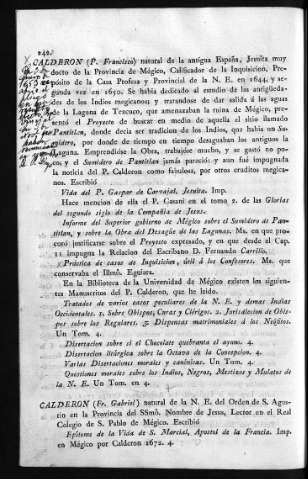 240
CALDERON (P. Francisco) natural de la antigua España, Jesuita muy
docto de la Provincia de Mégico, Calificador de la Inquisicion, Pre-
pósito de la Casa Profesa y Provincial de la N. E. en 1644, y se-
gunda vez en 1650. Se habia dedicado al estudio de las antigüeda-
des de los Indios megicanos; y tratandose de dar salida á las aguas
de la Laguna de Tezcuco, que amenazaban la ruina de Mégico, pre-
sentó el Proyecto de buscar en medio de aquella el sitio llamado
Pantitlan, donde decia ser tradicion de los Indios, que habia un Su-
midero, por donde de tiempo en tiempo desaguaban los antiguos la
Laguna. Emprendióse la Obra, trabajóse mucho, y se gastó no po-
co, y el Sumidero de Pantitlan jamás pareció y aun fué impugnada
la noticia del P. Calderon como fabulosa, por otros eruditos megica-
nos. Escribió
Vida del P. Gaspar de Carvajal, Jesuita. Imp.
Hace mencion de ella el P. Casani en el tomo 2. de las Glorias
del segundo siglo de la Compañia de Jesus.
Informe del Superior gobierno de Mégico sobre el Sumidero de Pan-
titlan, y sobre la Obra del Desagüe de las Lagunas. Ms. en que pro-
curó justificarse sobre el Proyecto expresado, y en que desde el Cap.
11 impugna la Relacion del Escribano D. Fernando Carrillo.
Práctica de casos de Inquisicion, útil á los Confesores. Ms. que
conservaba el Illmô. Eguiara.
En la Biblioteca de la Universidad de Mégico existen los siguien-
tes Manuscritos del P. Calderon, que he leido.
Tratados de varios casos peculiares de la N. E. y demas Indias
Occidentales. 1. Sobre Obispos, Curas y Clérigos. 2. Jurisdiccion de Obis-
pos sobre los Regulares. 3. Dispensas matrimoniales á los Neófitos.
Un Tom. 4.
Disertacion sobre si el Chocolate quebranta el ayuno. 4.
Disertacion litúrgica sobre la Octava de la Concepcion. 4.
Varias Disertaciones morales y canónicas. Un Tom. 4.
Questiones morales sobre los Indios, Negros, Mestizos y Mulatos de
la N. E. Un Tom. en 4.
CALDERON (Fr. Gabriel) natural de la N. E. del Orden de S. Agus-
tin en la Provincia del SSmô. Nombre de Jesus, Lector en el Real
Colegio de S. Pablo de Mégico. Escribió
Epítome de la Vida de S. Marcial, Apostol de la Francia. Imp.
en Mégico por Calderon 1672. 4.